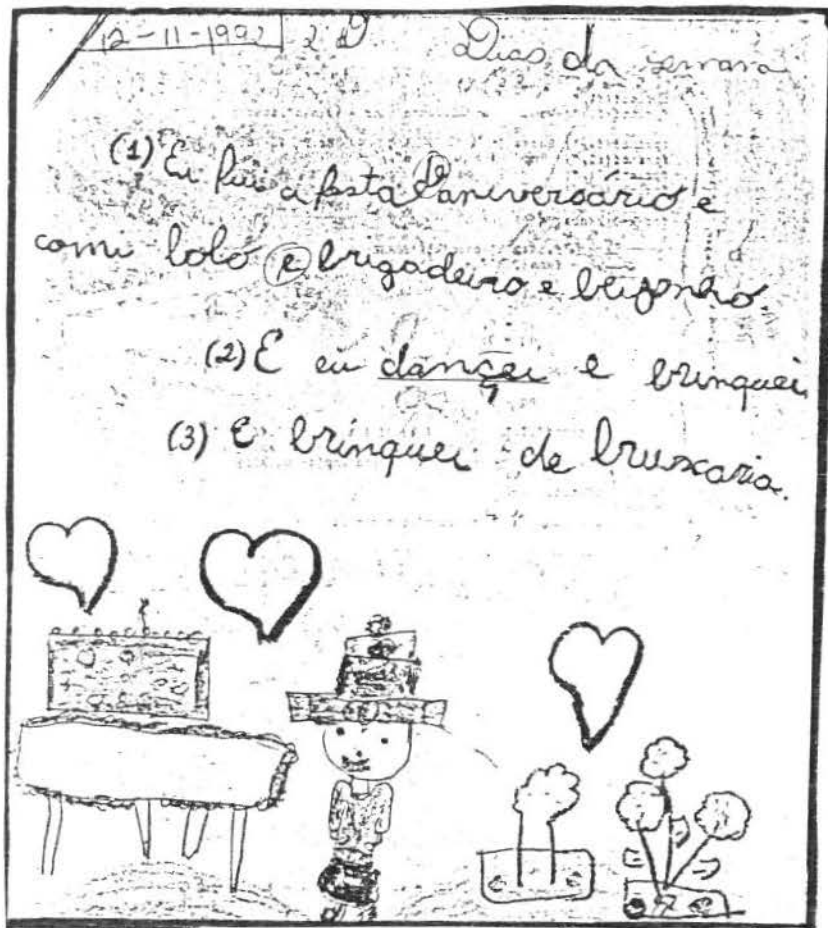 12-11-1992 2ª D Dias da semana
(1) Eu fui a festa de aniversário e
comi bolo e brigadeiro e beijinho.
(2) E eu dançei e brinquei
(3) E brinquei de bruxaria.